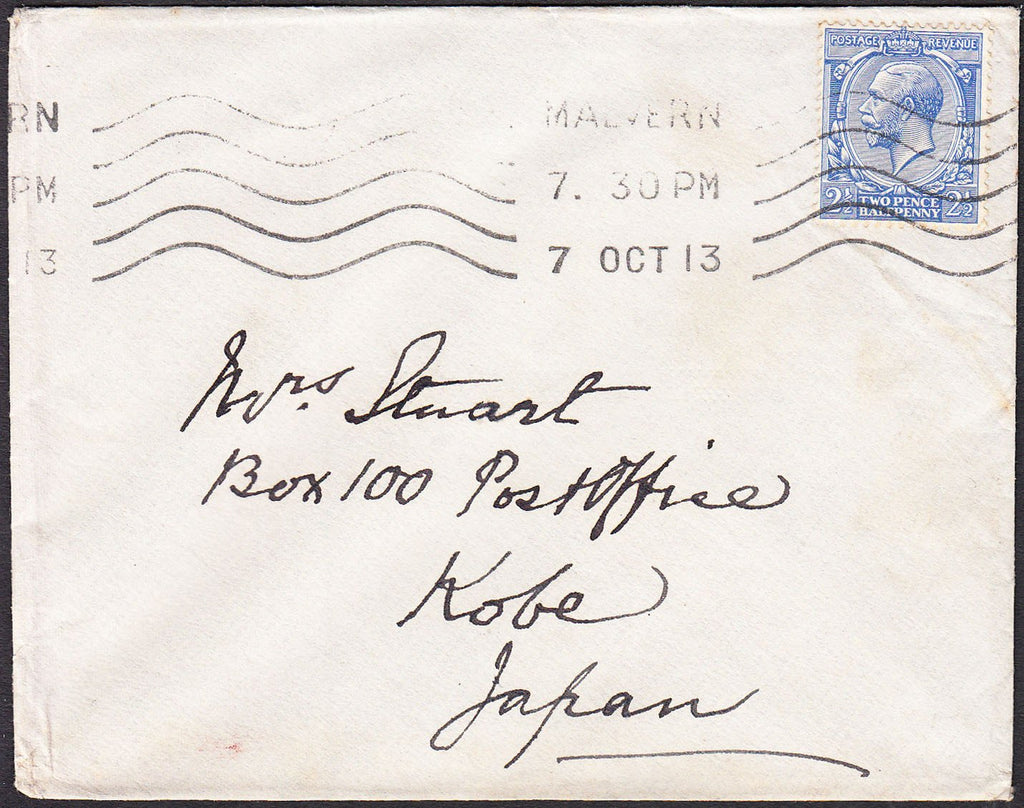 POSTAGE REVENUE
2½ TWO PENCE HALFPENNY 2½
RN MALVERN
PM 7. 30 PM
13 7 OCT 13
Mrs. Stuart
Box 100 Post Office
Kobe
Japan